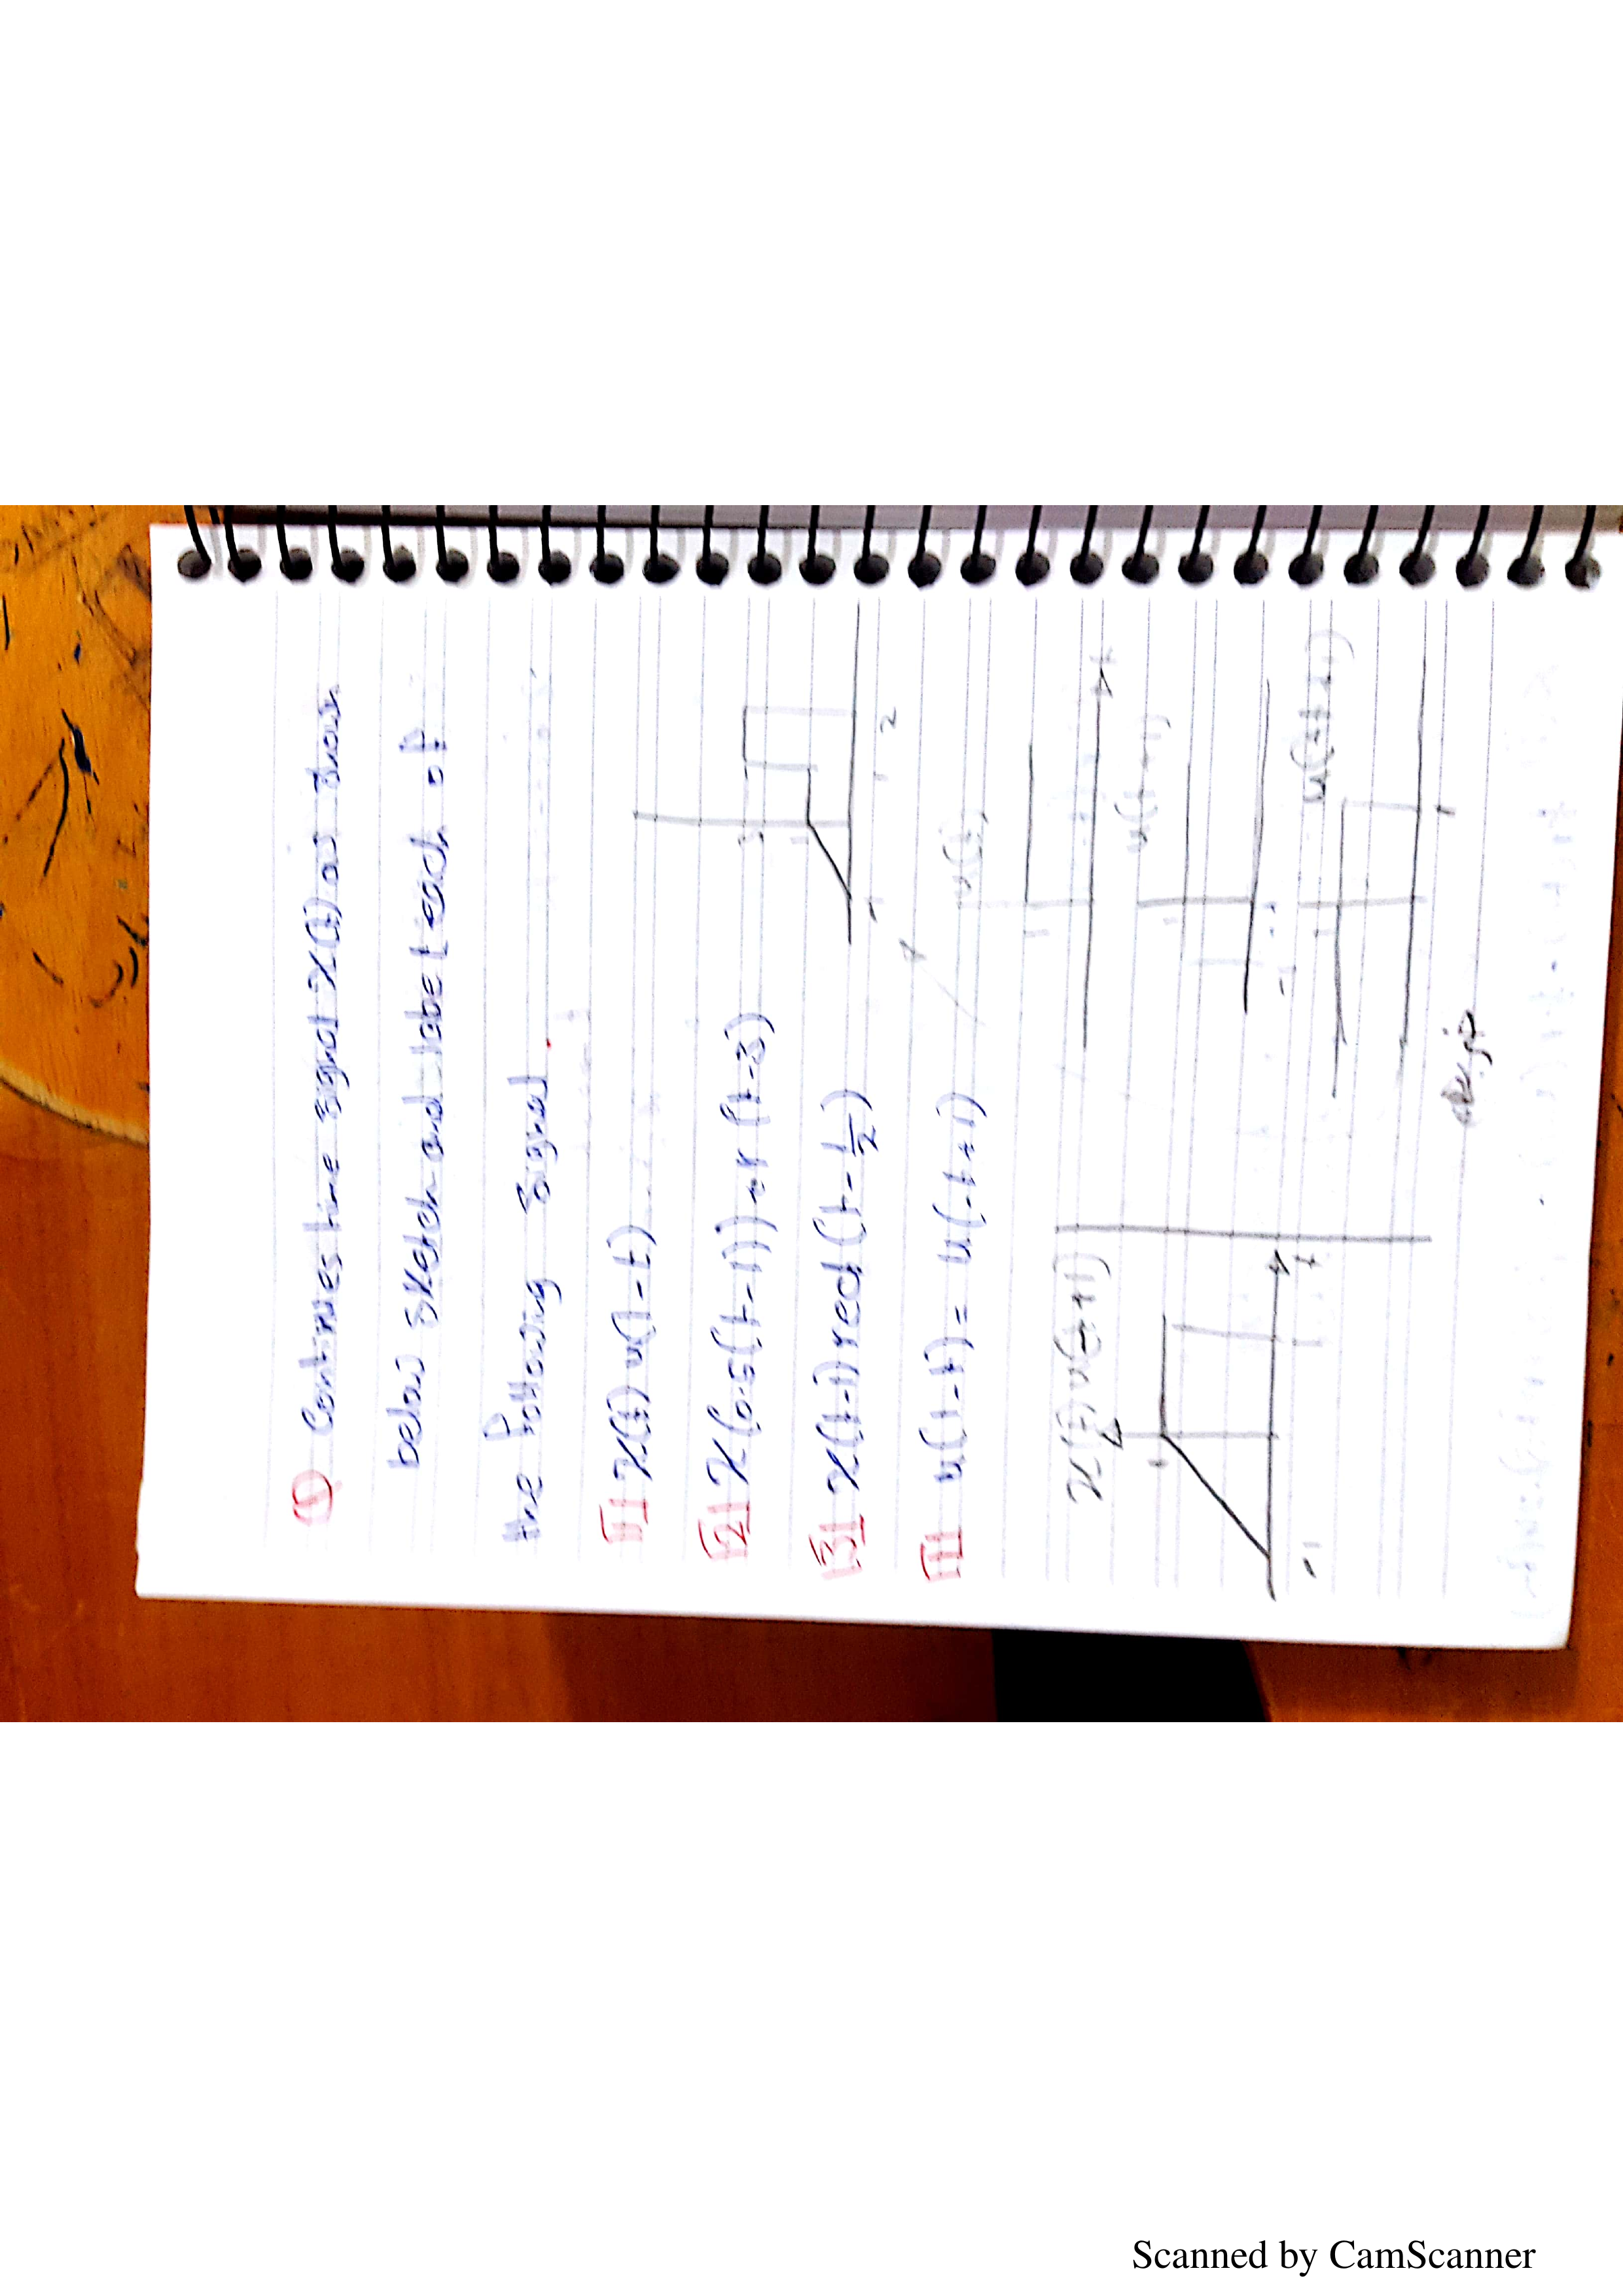 ① Continues time signal x(t) as show
below sketch and label each of
the following signal
[1] x(t) u(1-t)
[2] x(0.5(t-1)) = r(t-3)
[3] x(t-1) rect(t-1/2)
3
1
-1 1 2
[1] u(1-t) = u(-t+1)
u(t)
1
t
x(t) u(-t+1)
1
-1 1 t
u(t+1)
1
-1
u(-t+1)
1
1
Scanned by CamScanner